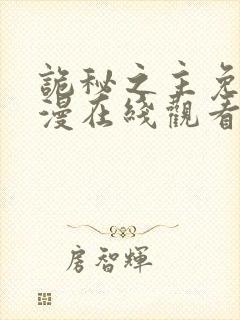 詭秘之主免
漫在綫觀看
房智輝